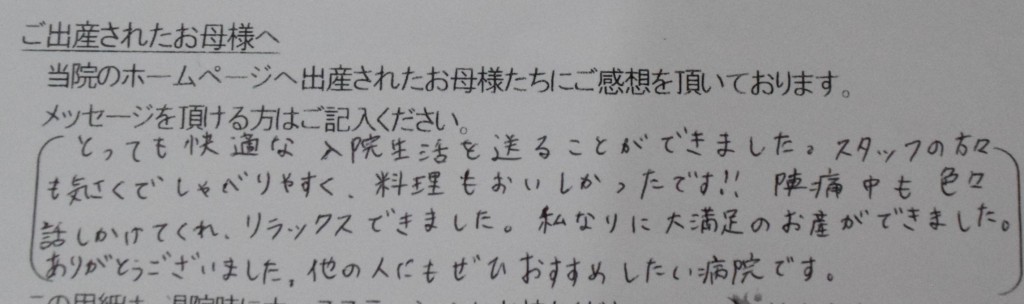 ご出産されたお母様へ
当院のホームページへ出産されたお母様たちにご感想を頂いております。
メッセージを頂ける方はご記入ください。
とっても快適な入院生活を送ることができました。スタッフの方々
も気さくでしゃべりやすく、料理もおいしかったです!! 陣痛中も色々
話しかけてくれ、リラックスできました。私なりに大満足のお産ができました。
ありがとうございました。他の人にもぜひおすすめしたい病院です。
この用紙は、退院時に